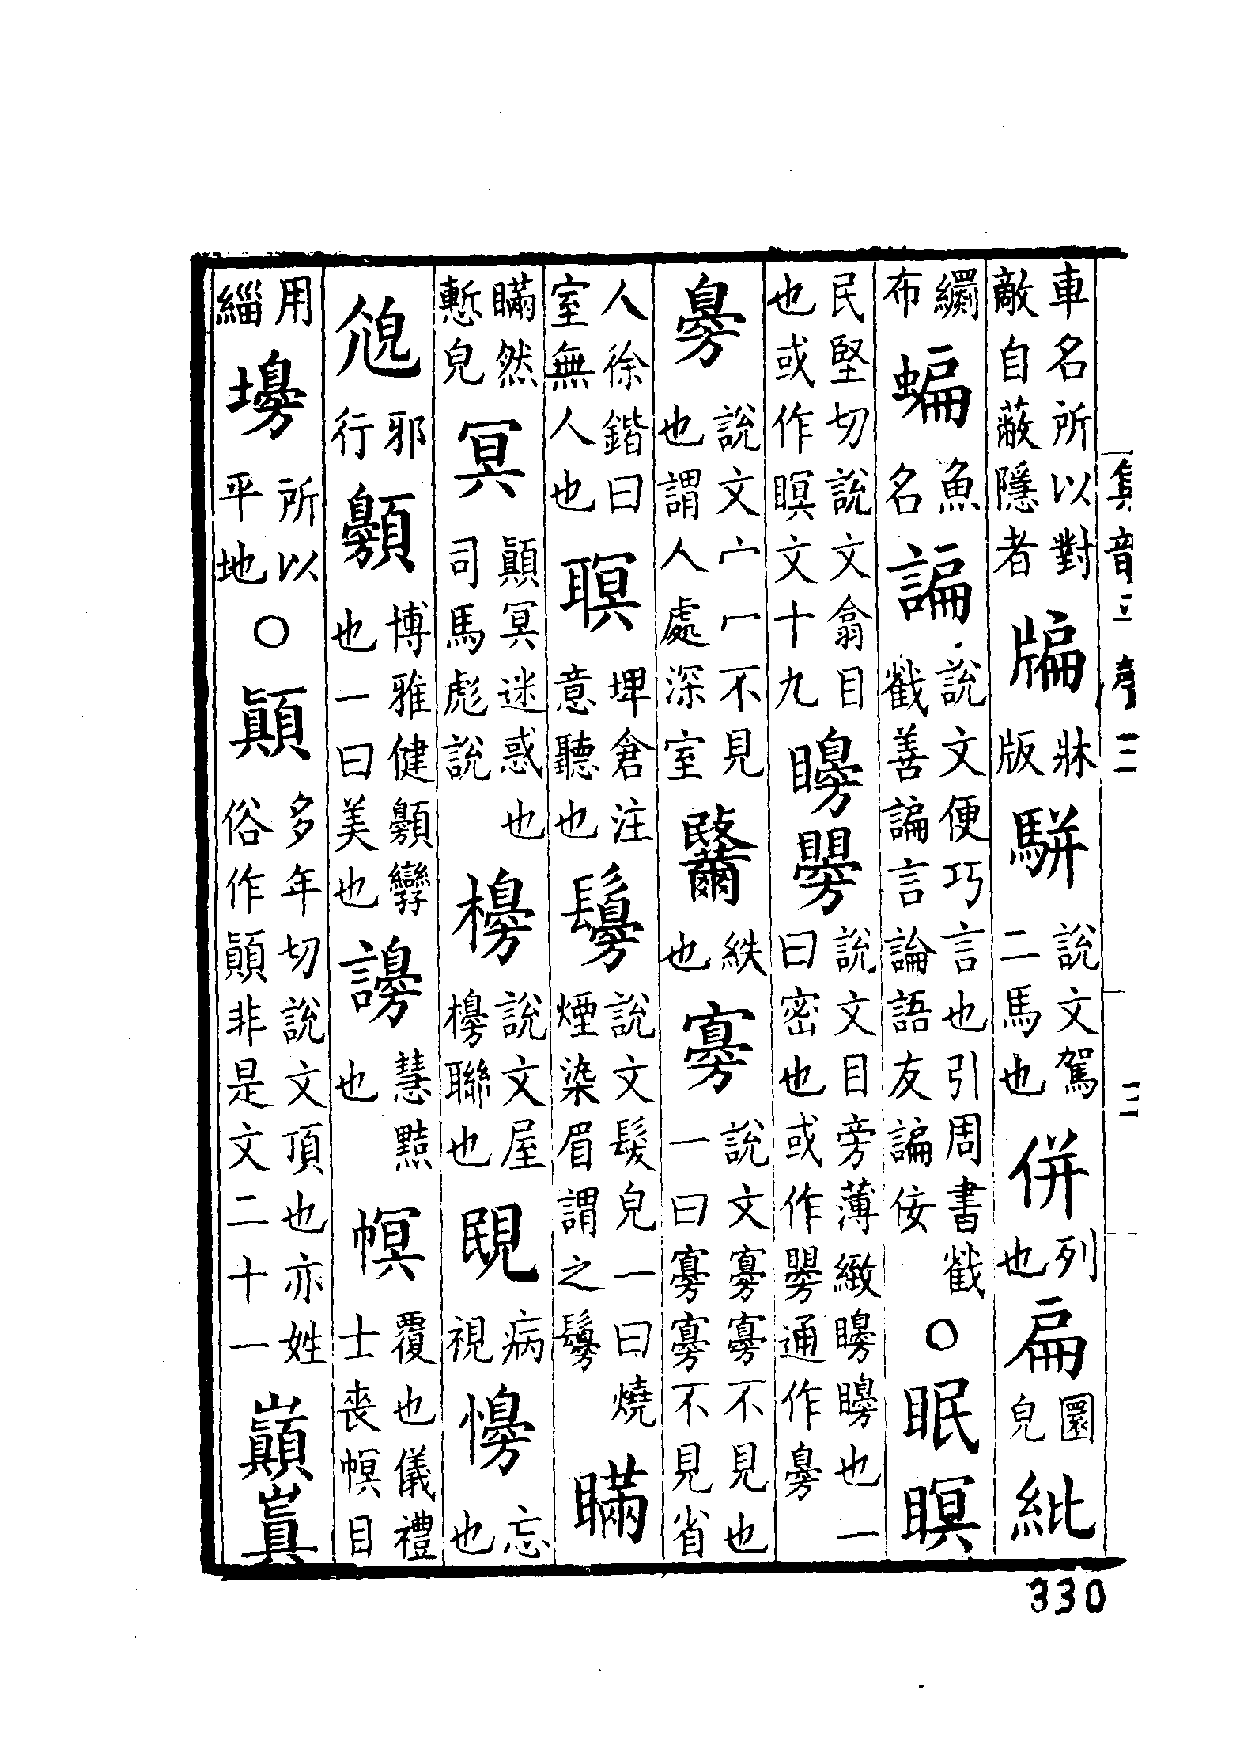 車名所以對敵自蔽隱者 牑 牀版 駢 說文駕二馬也 併 列也 扁 圜皃 紕
繝布 蝙 魚名 諞 說文便巧言也引周書戳善諞言論語友諞佞 ○ 眠 瞑
民堅切說文翕目也或作瞑文十九 矏 矎 說文目旁薄緻矏矏也一曰密也或作矎通作臱
臱 說文宀一不見也謂人處深室 紩也 㝰 說文㝰㝰不見也一曰㝰㝰不見省
人徐鍇曰室無人也 䏃 埤倉注意聽也 鬗 說文髮皃一曰燒煙染眉謂之 瞞
瞞然慙皃 冥 顚冥迷惑也司馬彪說 櫋 說文屋櫋聯也 病視 忘也
邪行 博雅健孿也一曰美也 慧黠也 幎 覆也儀禮士喪幎目
用緇 所以平地 ○ 顚 多年切說文頂也亦姓俗作顛非是文二十一 巔
集韻 二
330